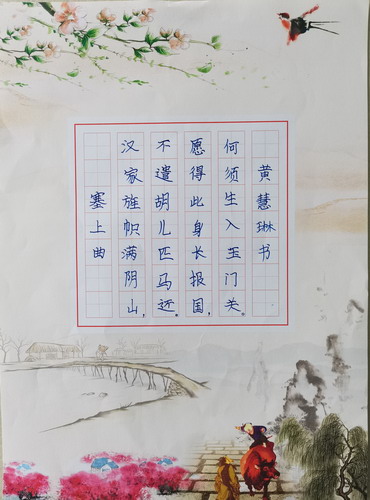 塞上曲
汉家旌帜满阴山，
不遣胡儿匹马还。
愿得此身长报国，
何须生入玉门关。
黄慧琳书